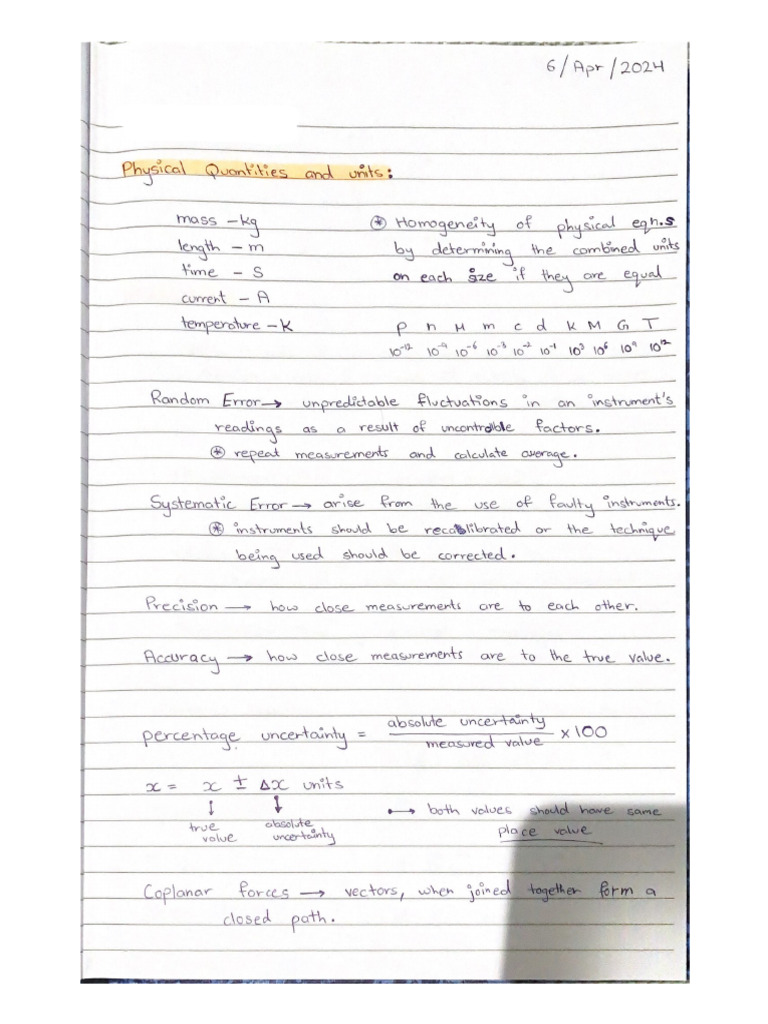 6/Apr/2024
Physical Quantities and units:
mass – kg
length – m
time – S
current – A
temperature – K
⊛ Homogeneity of physical eqn.s
by determining the combined units
on each size if they are equal
p n μ m c d k M G T
10⁻¹² 10⁻⁹ 10⁻⁶ 10⁻³ 10⁻² 10⁻¹ 10³ 10⁶ 10⁹ 10¹²
Random Error → unpredictable fluctuations in an instrument's
readings as a result of uncontrolble factors.
⊛ repeat measurements and calculate average.
Systematic Error → arise from the use of faulty instruments.
⊛ instruments should be recalibrated or the technique
being used should be corrected.
Precision → how close measurements are to each other.
Accuracy → how close measurements are to the true value.
percentage uncertainty = absolute uncertainty / measured value × 100
x = x ± Δx units
↓ ↓
true value
absolute uncertainty
•→ both values should have same
place value
Coplanar forces → vectors, when joined together form a
closed path.